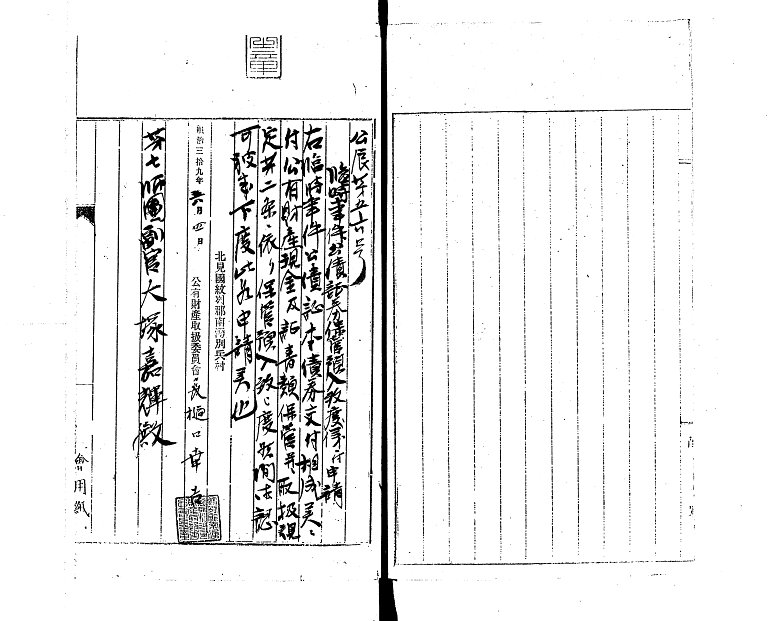 公辰第五六号
臨時事件公債証券保管預入致度儀ニ付申請
右臨時事件公債証本債券交付相成候ニ
付公有財産現金及証書類保管并取扱規
定第二条ニ依リ保管預入致シ度候間御認
可被成下度此段申請候也
明治三拾九年 六月 四日
北見國紋別郡南湧別兵村
公有財産取扱委員会長樋口幸吉
第七師團副官大塚嘉輝殿
會用紙